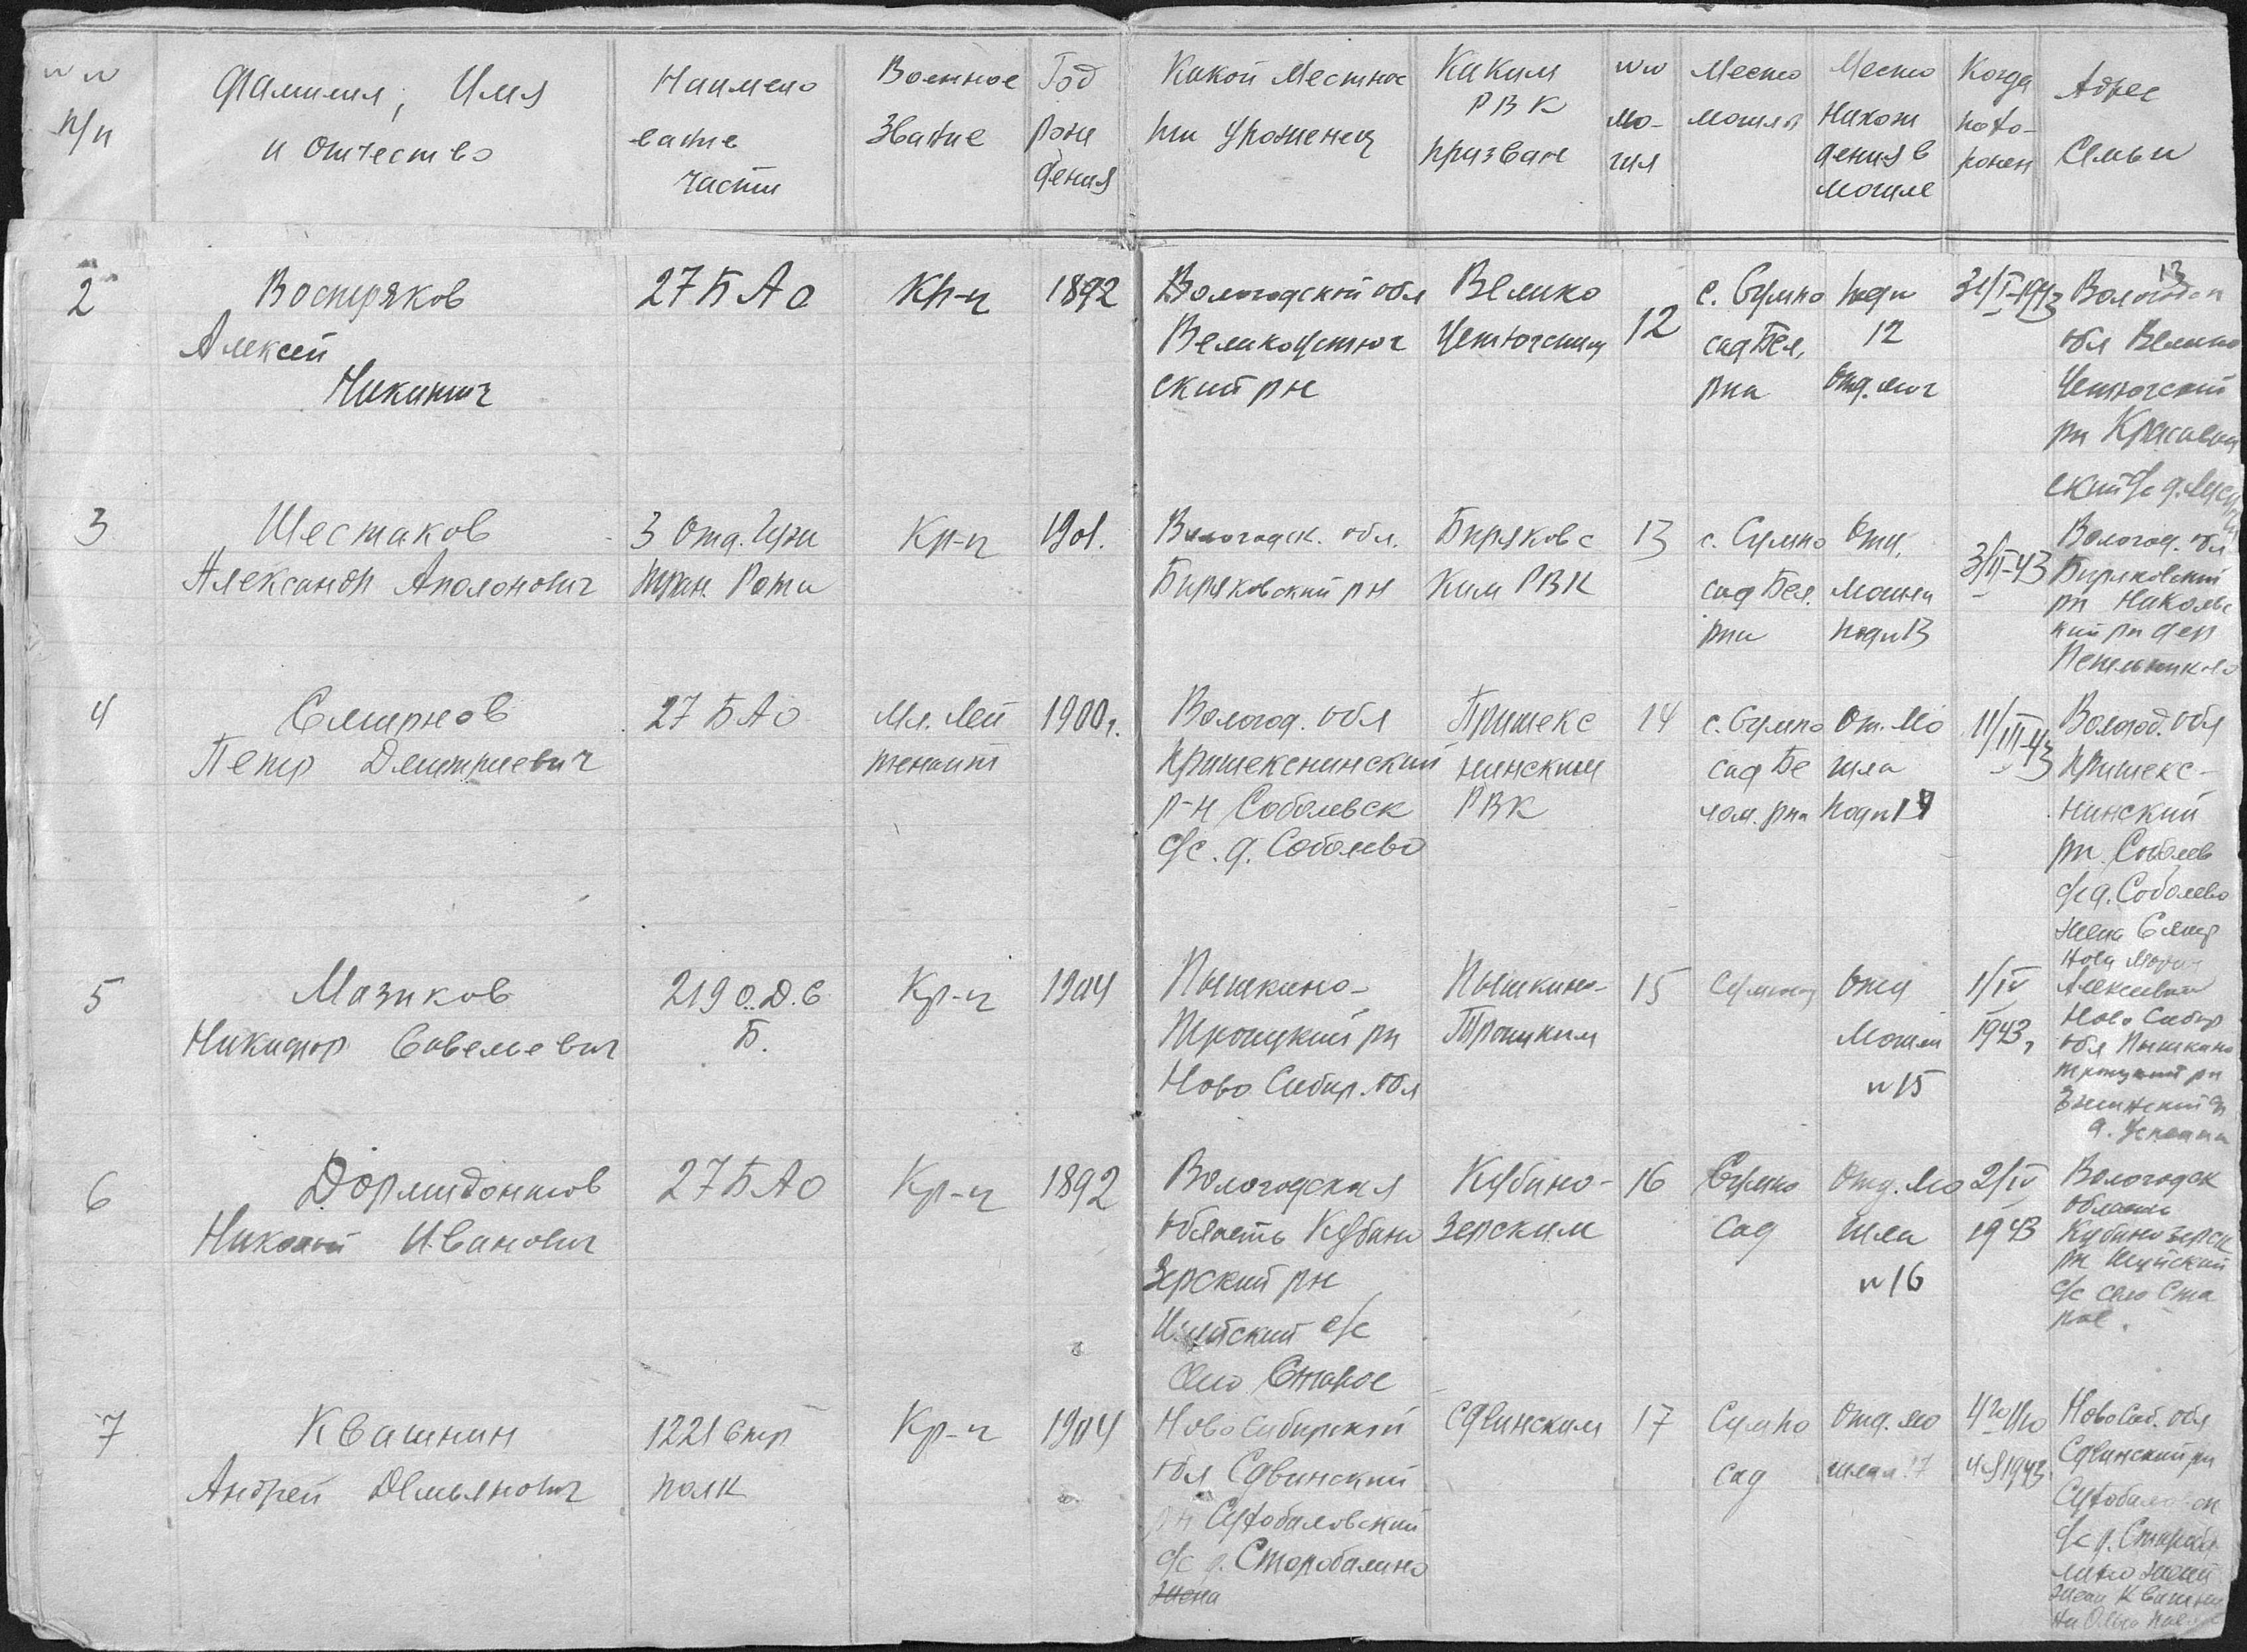 №№ п/п
Фамилия, Имя
и отчество
Наимено
вание
части
Военное
Звание
Год
рож
дения
Какой Местнос
ти уроженец
Каким
РВК
призван
№№
мо-
гил
Место
могилы
Место
Нахож
дения в
могиле
Когда
похо-
ронен
Адрес
Семьи
13
2
Востряков
Алексей
Никитич
27 БАО
Кр-ц
1892
Вологодской обл
Великоустюг
ский рн
Велико
Устюгским
12
с. Сумпо
сад Бел.
рна
под №
12
отд. мог
31/I-1943
Вологодск
обл Велико
Устюгский
рн Красавин
ский с/с д.
3
Шестаков
Александр Аполонович
3 Отд. Гуж
тран. Рота
Кр-ц
1901.
Вологодск. обл.
Биряковский рн
Биряковс
ким РВК
13
с. Сумпо
сад Бел.
рна
Отд.
могила
под №13
3/II-43
Вологод. обл
Биряковский
рн Никольс
кий рн дер
4
Смирнов
Петр Дмитриевич
27 БАО
Мл. Лей
тенант
1900г.
Вологод. обл
Пришекснинский
р-н Соболевск
с/с. д. Соболево
Пришекс
нинским
РВК
14
с. Сумпо
сад Бе
лом. рна
От. Мо
гила
под №14
11/III-43
Вологод. обл
Пришекс-
нинский
рн Соболев
с/с д. Соболево
жена Смир
нова Мария
Алексеевна
5
Мазиков
Никифор Савельевич
219 О.Д.С
Б.
Кр-ц
1904
Пышкино-
Троицкий рн
Ново Сибир. обл
Пышкино-
Троицким
15
Отд
Могила
№15
1/IV
1943г
Ново Сибир
обл Пышкино
троицкий рн
6
Дормидонтов
Николай Иванович
27 БАО
Кр-ц
1892
Вологодская
область Кубино
Зерский рн
Шуйский с/с
село Старое
Кубино-
Зерским
16
Сумпо
сад
Отд. Мо
гила
№16
2/IV
1943
Вологодск
область
Кубино зерск
рн Шуйский
с/с село Ста
рое.
7
Квашнин
Андрей Демьянович
1221 Стр
полк
Кр-ц
1904
Ново Сибирской
обл Сдвинский
рн Сухобаловский
с/с д. Старобалино
жена
Сдвинским
17
Сумпо
сад
Отд. мо
гила №17
4го Ию
ня 1943
Ново Сиб. обл
Сдвинский рн
с/с д.
жена Квашни
на